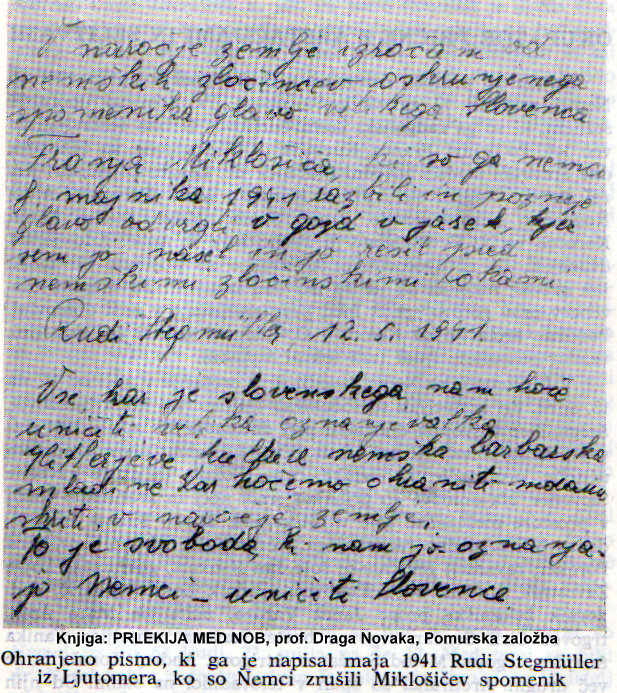 V naročje zemlje izročam od
nemških zločincev oskrunjenega
spomenika glavo velikega Slovenca
Franja Miklošiča, ki so ga nemci
majnika 1941 razbili in pozneje
glavo odvrgli v gozd v jarek, kjer
sem jo našel in jo rešil pred
nemškimi zločinskimi rokami.
Rudi Stegmüller, 12. 5. 1941.
Vse, kar je slovenskega, nam hoče
uničiti velika oznanjevalka
Hitlerjeve kulture nemška barbarska
mladine kar hočemo ohraniti moramo
skriti v naročje zemlje.
To je svoboda, ki nam jo oznanja-
jo Nemci – uničiti Slovence.
Knjiga: PRLEKIJA MED NOB, prof. Draga Novaka, Pomurska založba
Ohranjeno pismo, ki ga je napisal maja 1941 Rudi Stegmüller
iz Ljutomera, ko so Nemci zrušili Miklošičev spomenik